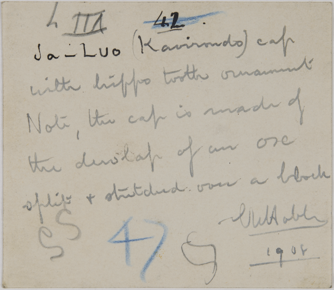 L III 42.
Ja-Luo (Kavirondo) cap
with hippo tooth ornament
Note, the cap is made of
the dewlap of an ox
split & stretched over a block
CWHobley
47
1908